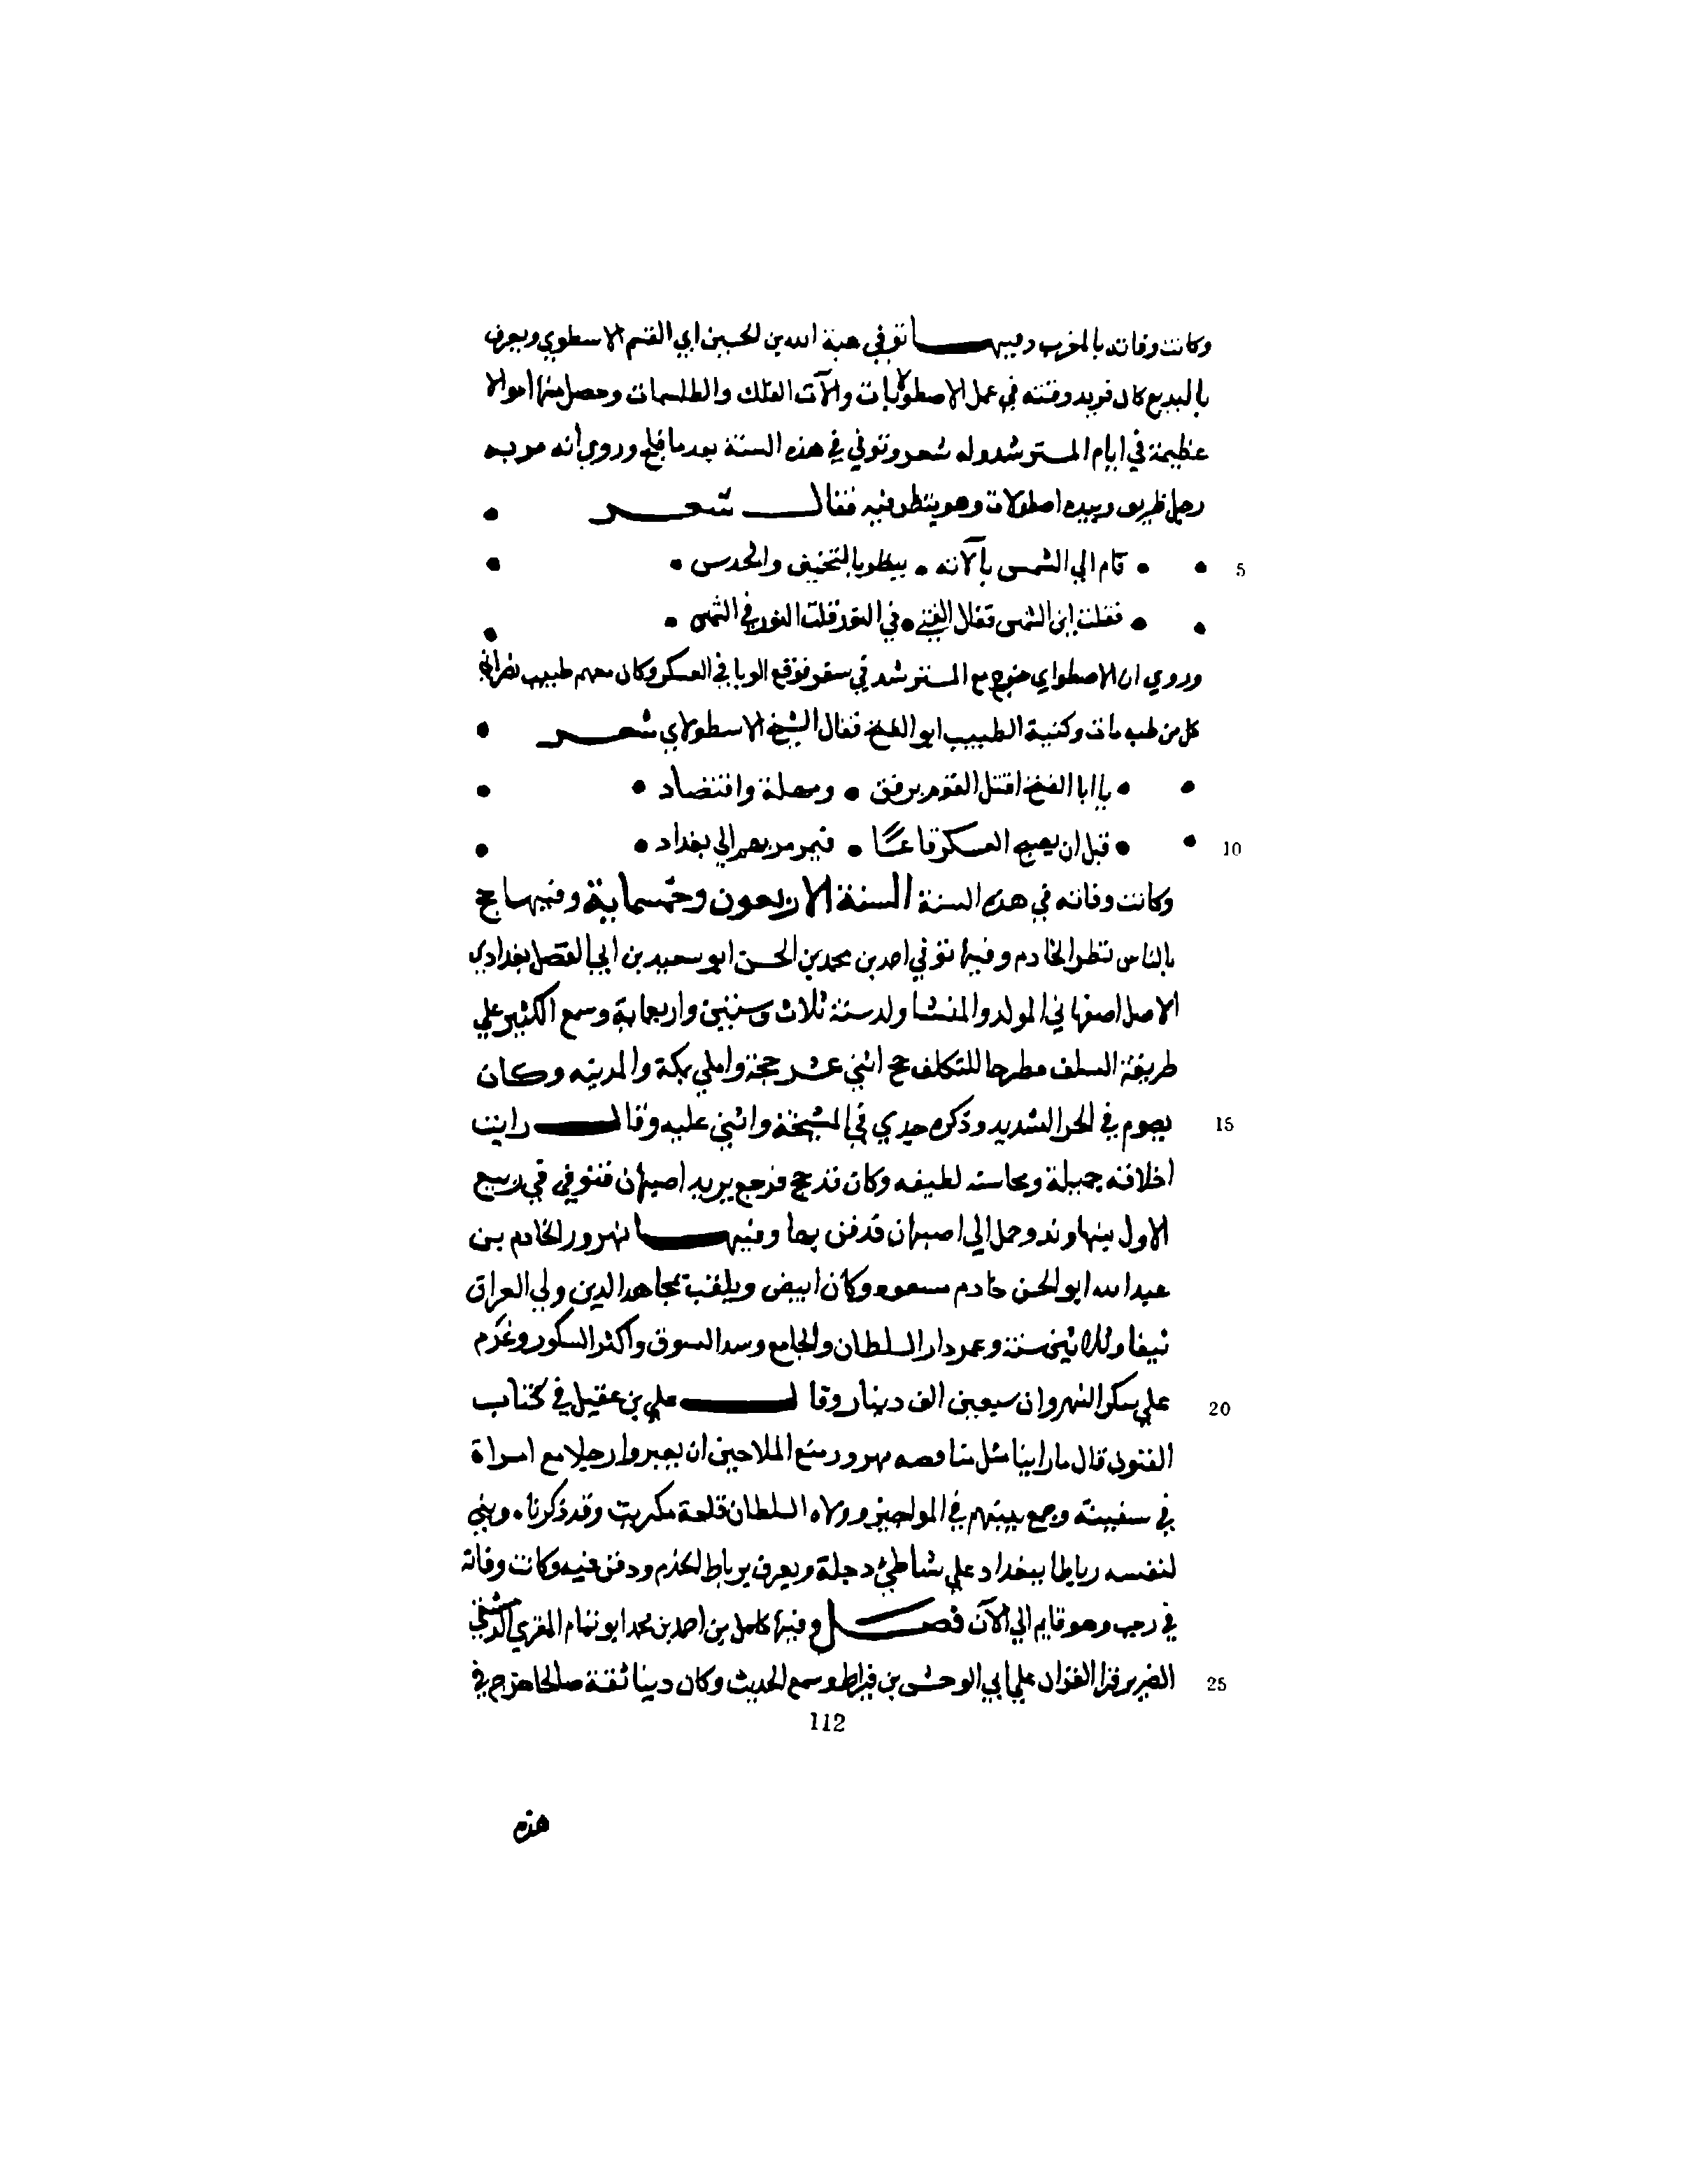 وكانت وفاته بالمغرب وفيها توفي هبة الله بن الحسين ابي القسم الاسطولابي ويعرف
بالبديع كان فريد وقته في عمل الاصطرلابات والآت الفلك والطلسمات وحصل منها اموالا
عظيمة في ايام المسترشد وله شعر وتوفي في هذه السنة بعد ما فلج وروي انه مر به
رجل ظريف وبيده اصطرلاب وهو ينظر فيه فقال شعر •
5 • • قام الي الشمس بآلاته • ينظر بالتخفيف والحدس • •
• • فقلت اين الشمس فقال الفتي • في الثور قلت الثور في الشمس • •
وروي ان الاصطرلابي خرج مع المسترشد في سفر فوقع الوبا في العسكر وكان معهم طبيب نصراني
كل من طبه مات وكنية الطبيب ابو الفتح فقال الشيخ الاسطرلابي شعر •
• • يا ابا الفتح اقتل القوم برفق • ومهلة واقتصاد • •
10 • • قبل ان يصبح العسكر قاعًا • فيمر مر بهم الي بغداد • •
وكانت وفاته في هذه السنة السنة الاربعون وخمسماية وفيها حج
بالناس نظر الخادم وفيها توفي احمد بن محمد بن الحسن ابو سعيد بن ابي الفضل بغدادي
الاصل اصفهاني المولد والمنشا ولد سنة ثلاث وستين واربعماية وسمع الكثير علي
طريقة السلف مطرحا للتكلف حج اثني عشر حجة واملي بمكة والمدينه وكان
15 يصوم في الحر الشديد وذكره جدي في المشيخة واثني عليه وقال رايت
اخلاقه جميلة ومحاسنه لطيفه وكان قد حج فرجع يريد اصبهان فتوفي في ربيع
الاول بنهاوند وحمل الي اصبهان فدفن بها وفيها نهروز الخادم بن
عبد الله ابو الحسن خادم مسعود وكان ابيض ويلقب بمجاهد الدين ولي العراق
نيفا وثلاثين سنة وعمر دار السلطان والجامع وسد السوق واكثر السكور وغرم
20 علي سكر النهروان سبعين الف دينار وقال علي بن عقيل في كتاب
الفنون قال ما راينا مثل مناقصه بهروز منع الملاحين ان يعبروا رجلا مع امراة
في سفينة وجمع بينهم في المواخيز وولاه السلطان قلعة تكريت وقد ذكرناه وبني
لنفسه رباطا ببغداد علي شاطئ دجلة ويعرف برباط الخدم ودفن فيه وكانت وفاته
في رجب وهو قايم الي الآن فصل وفيها كامل بن احمد بن محمد ابو تمام المقري الدمشقي
25 الضرير قرا القران علي ابي الوحش بن قيراط وسمع الحديث وكان دينا ثقة صالحا خرج في
112
هذه